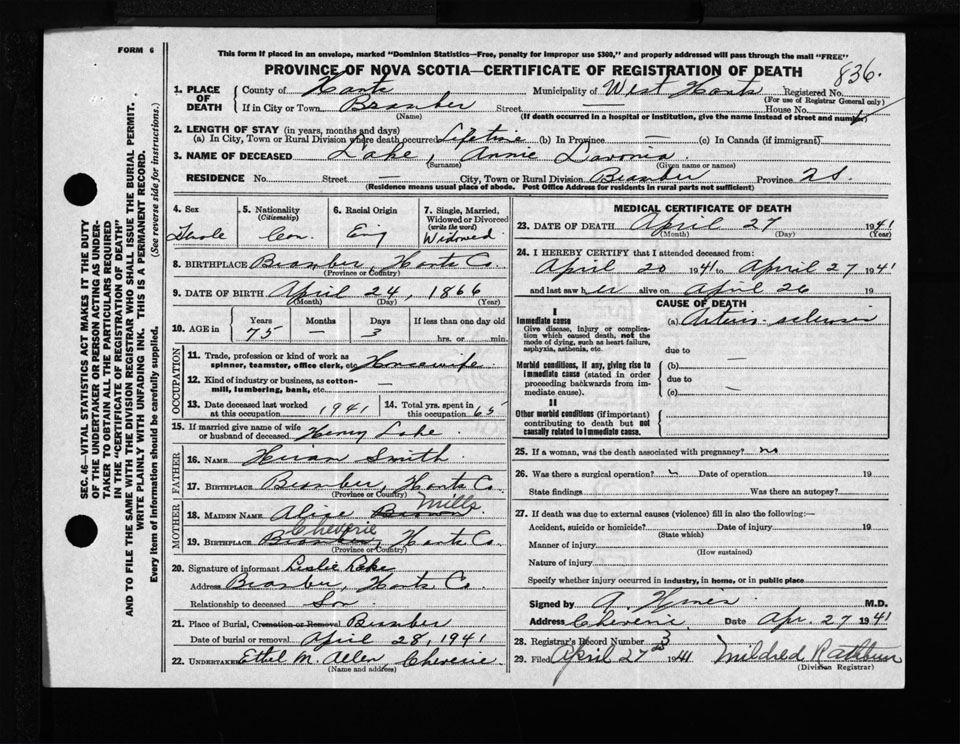 FORM 6
This form if placed in an envelope, marked "Dominion Statistics—Free, penalty for improper use $300," and properly addressed will pass through the mail "FREE"
PROVINCE OF NOVA SCOTIA—CERTIFICATE OF REGISTRATION OF DEATH
836.
1. PLACE OF DEATH County of Hants Municipality of West Hants Registered No.
(For use of Registrar General only)
If in City or Town Bramber Street — House No.
(Name) (If death occurred in a hospital or institution, give the name instead of street and number)
2. LENGTH OF STAY (in years, months and days)
(a) In City, Town or Rural Division where death occurred Lifetime (b) In Province — (c) In Canada (if immigrant) —
3. NAME OF DECEASED Lake, Annie Lavonia
(Surname) (Given name or names)
RESIDENCE No. Street — City, Town or Rural Division Bramber Province N.S.
(Residence means usual place of abode. Post Office Address for residents in rural parts not sufficient)
SEC. 46—VITAL STATISTICS ACT MAKES IT THE DUTY
OF THE UNDERTAKER OR PERSON ACTING AS UNDER-
TAKER TO OBTAIN ALL THE PARTICULARS REQUIRED
IN THE "CERTIFICATE OF REGISTRATION OF DEATH"
AND TO FILE THE SAME WITH THE DIVISION REGISTRAR WHO SHALL ISSUE THE BURIAL PERMIT.
WRITE PLAINLY WITH UNFADING INK. THIS IS A PERMANENT RECORD.
Every item of information should be carefully supplied. (See reverse side for instructions.)
4. Sex 5. Nationality (Citizenship) Can. 6. Racial Origin Eng 7. Single, Married, Widowed or Divorced (write the word) Widowed
8. BIRTHPLACE Bramber, Hants Co.
(Province or Country)
9. DATE OF BIRTH April 24, 1866
(Month) (Day) (Year)
10. AGE in Years 75 Months — Days 3 If less than one day old hrs. or min.
OCCUPATION
11. Trade, profession or kind of work as spinner, teamster, office clerk, etc. Housewife
12. Kind of industry or business, as cotton-mill, lumbering, bank, etc. —
13. Date deceased last worked at this occupation 1941 14. Total yrs. spent in this occupation 65
15. If married give name of wife or husband of deceased Henry Lake
FATHER
16. NAME Hiram Smith
17. BIRTHPLACE Bramber, Hants Co.
(Province or Country)
MOTHER
18. MAIDEN NAME Alice Brown Mills
19. BIRTHPLACE Bramber, Cheverie Hants Co.
(Province or Country)
20. Signature of informant Leslie Lake
Address Bramber, Hants Co.
Relationship to deceased Son
21. Place of Burial, Cremation or Removal Bramber
Date of burial or removal April 28, 1941
22. UNDERTAKER Ethel M. Allen, Cheverie
(Name and address)
MEDICAL CERTIFICATE OF DEATH
23. DATE OF DEATH April 27 1941
(Month) (Day) (Year)
24. I HEREBY CERTIFY that I attended deceased from:
April 20 1941 to April 27 1941
and last saw her alive on April 26 19
CAUSE OF DEATH
I
Immediate cause (a) Arterio-sclerosis
Give disease, injury or complication which caused death, not the mode of dying, such as heart failure, asphyxia, asthenia, etc.
due to
Morbid conditions, if any, giving rise to immediate cause (stated in order proceeding backwards from immediate cause).
(b) —
due to
(c) —
II
Other morbid conditions (if important) contributing to death but not causally related to immediate cause.
25. If a woman, was the death associated with pregnancy? no
26. Was there a surgical operation? Date of operation 19
State findings Was there an autopsy?
27. If death was due to external causes (violence) fill in also the following:—
Accident, suicide or homicide? Date of injury 19
(State which)
Manner of injury
(How sustained)
Nature of injury
Specify whether injury occurred in industry, in home, or in public place
Signed by M.D.
Address Cheverie Date Apr. 27 1941
28. Registrar's Record Number 3
29. Filed April 27th 1941 Mildred Rathbun
(Division Registrar)